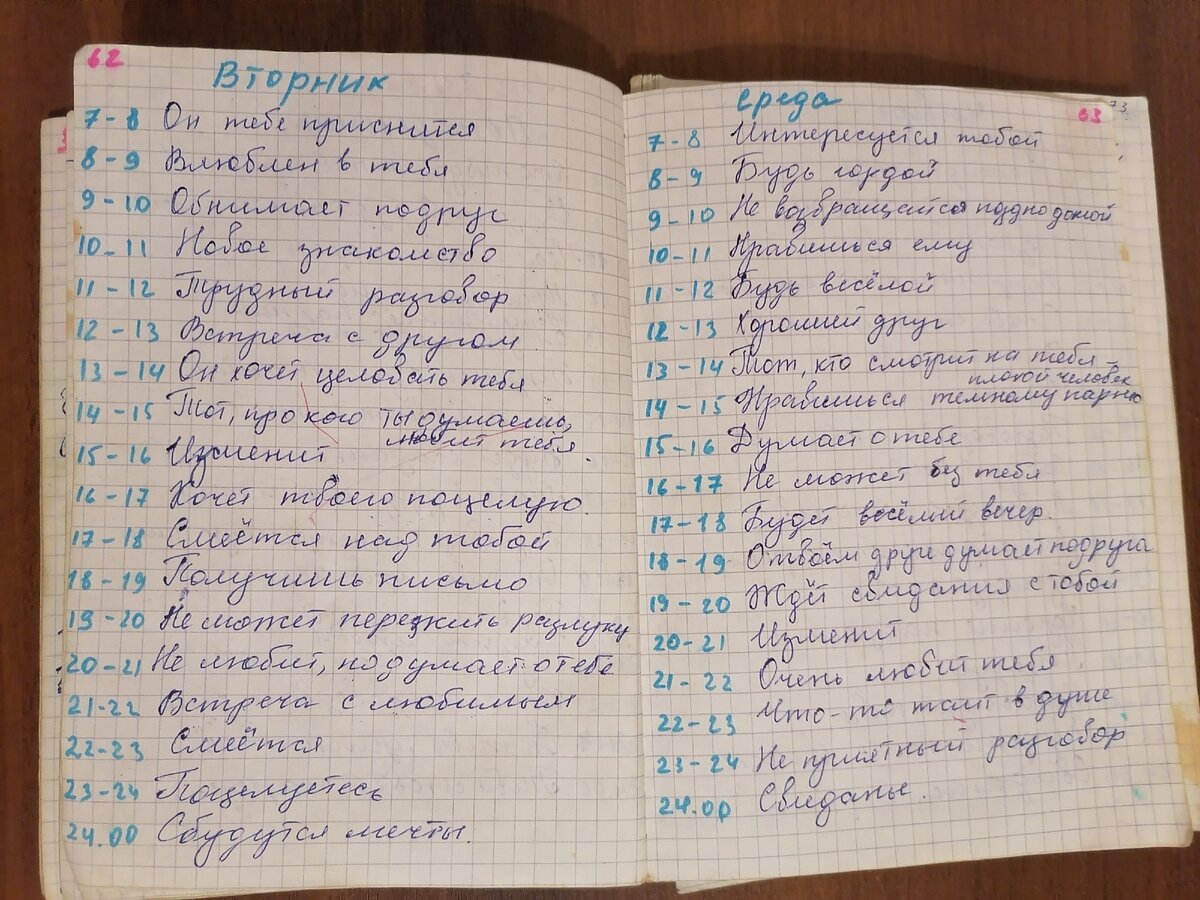 62
Вторник
7-8 Он тебе приснится
8-9 Влюблен в тебя
9-10 Обнимает подруг
10-11 Новое знакомство
11-12 Трудный разговор
12-13 Встреча с другом
13-14 Он хочет целовать тебя
14-15 Тот, про кого ты думаешь,
любит тебя.
15-16 Изменит
16-17 Хочет твоего поцелую.
17-18 Смеётся над тобой
18-19 Получишь письмо
19-20 Не может пережить разлуку
20-21 Не любит, но думает о тебе
21-22 Встреча с любимым
22-23 Смеётся
23-24 Поцелуетесь
24.00 Сбудутся мечты.
73
63
среда
7-8 Интересуется тобой
8-9 Будь гордой
9-10 Не возвращайся поздно домой
10-11 Нравишься ему
11-12 Будь весёлой
12-13 Хороший друг
13-14 Тот, кто смотрит на тебя –
плохой человек
14-15 Нравишься темному парню
15-16 Думает о тебе
16-17 Не может без тебя
17-18 Будет весёлый вечер.
18-19 О твоём друге думает подруга
19-20 Ждёт свидания с тобой
20-21 Изменит
21-22 Очень любит тебя
22-23 Что-то таит в душе
23-24 Не приятный разговор
24.00 Свиданье.